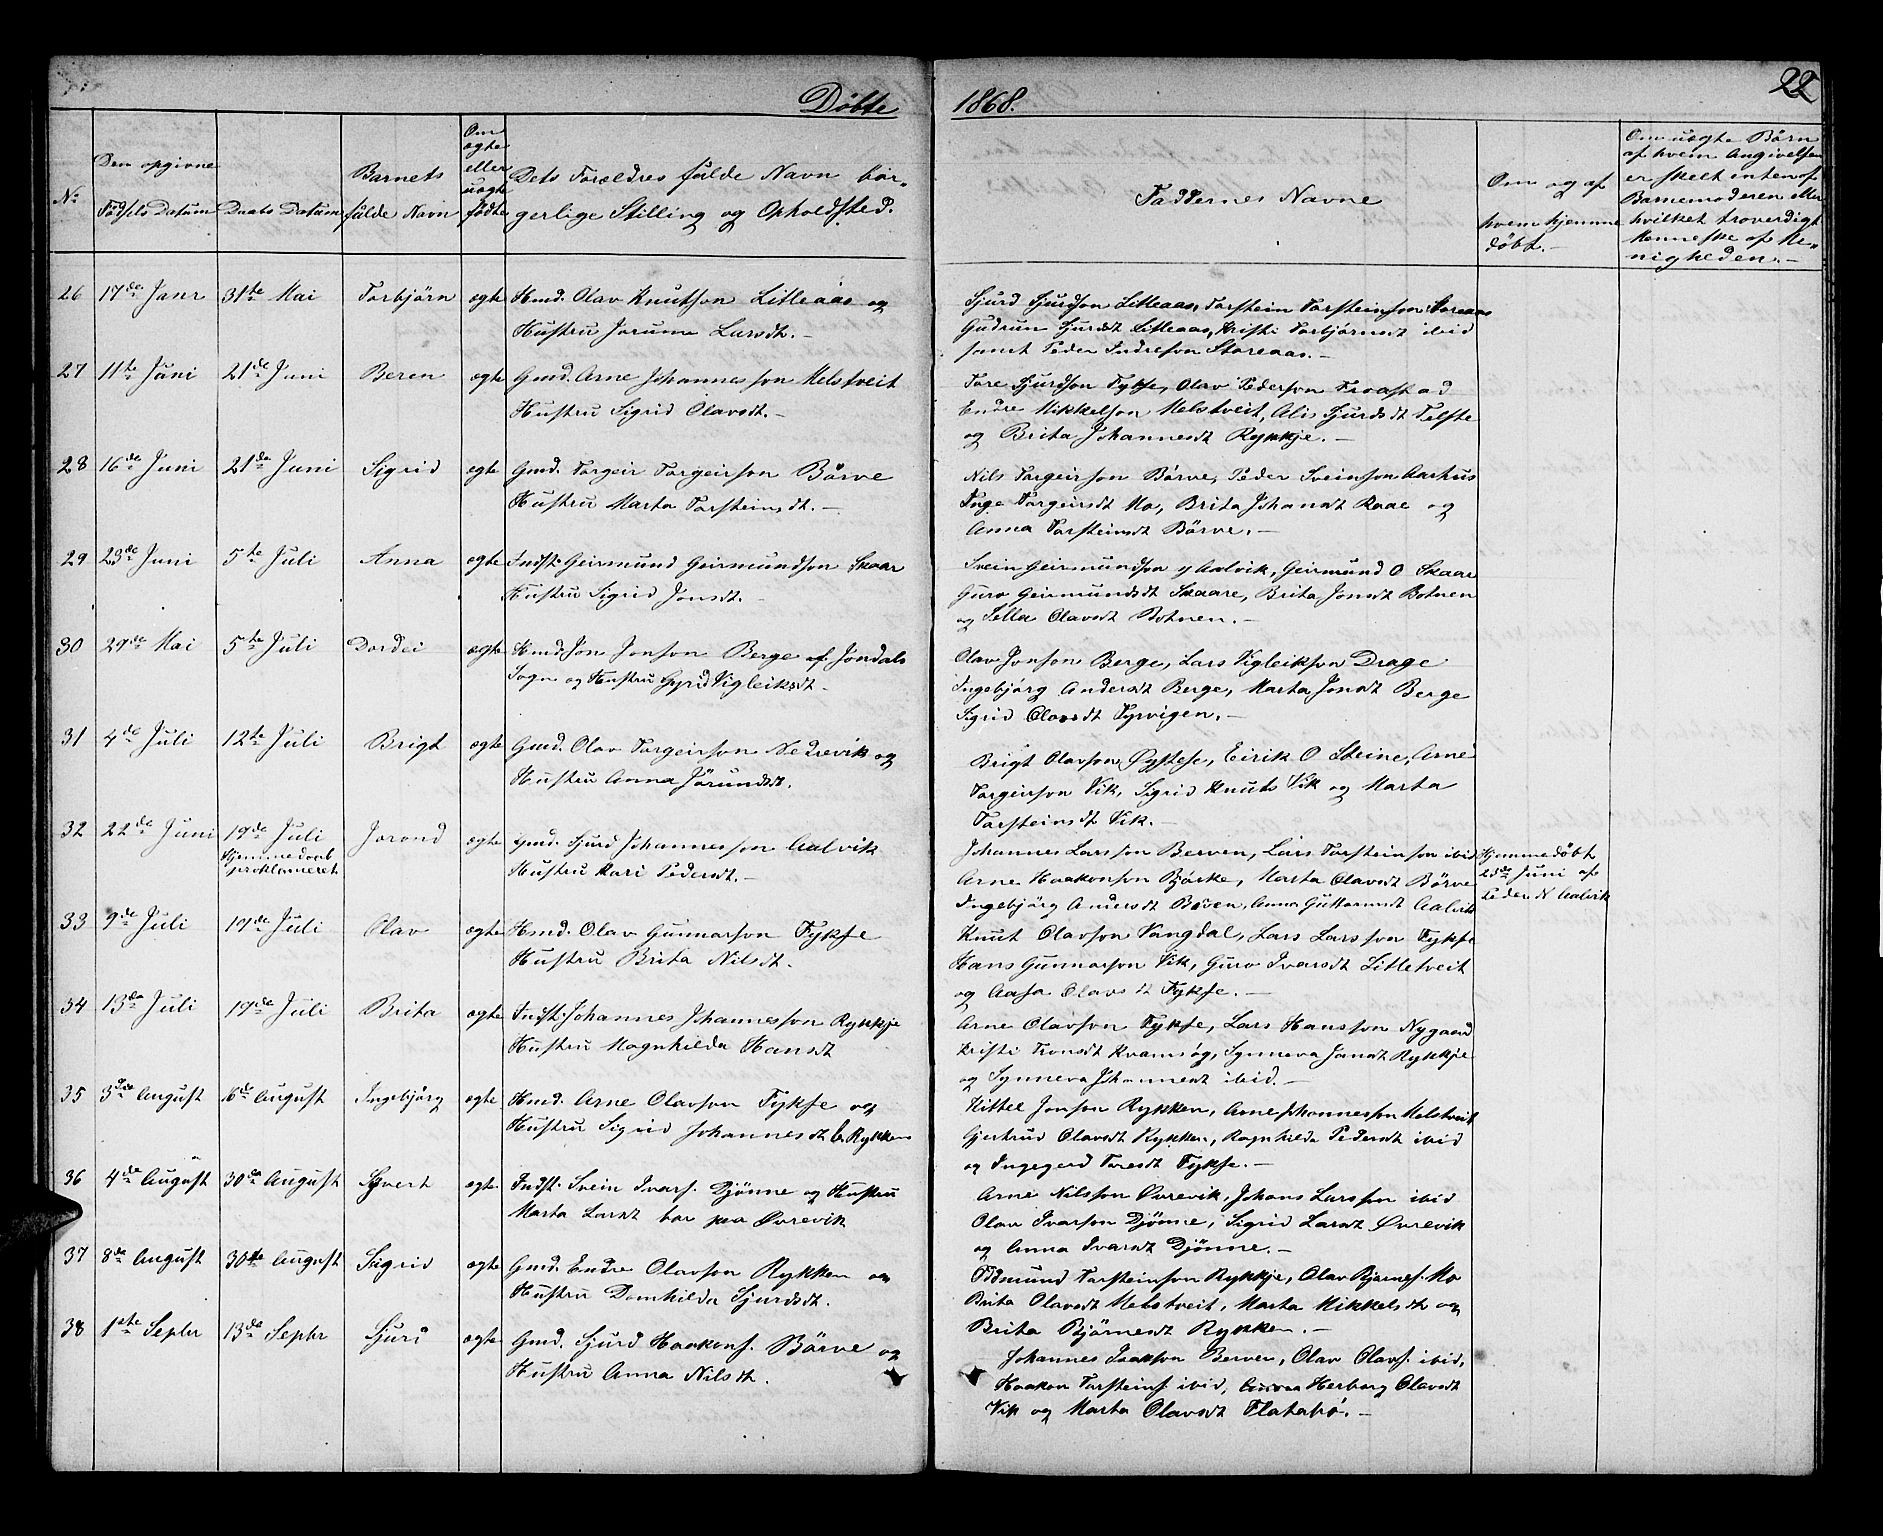 22
Døbte 1868.
No
Den opgivne
Fødsels Datum
Daabs Datum
Barnets
fulde Navn
Om
ægte
eller
uægte
fødte
Dets Forældres fulde Navn bor-
gerlige Stilling og Opholdsted.
Faddernes Navne
Om og af
hvem hjemme
døbt.-
Om uægte Børn
af hvem Angivelsen
er skelt inten af
Barnemoderen eller
hvilket troverdigt
Menneske af Me-
nigheden.-
26 17de Janr 31te Mai Torbjörn ægte Hmd. Olav Knutson Litleaas og
Hustru Jorunna Larsdt.-
Sjurd Sjurdson Litleaas, Torstein Torsteinson Storeaas
Gudrun Sjurdsdt Litleaas, Kristi Torbjørnsdt ibid
samt Peder Indreson Storeaas.-
27 11te Juni 21de Juni Beren ægte Gmd. Arne Johannesson Melstveit
Hustru Sigrid Olavsdt.-
Tore Sjurdson Fykse, Olav Pederson Froastad
Endre Mikkelson Melstveit, Alis Sjurdsdt Telste
og Brita Johannesdt Rykkje.-
28 16de Juni 21de Juni Sigrid ægte Gmd. Torgeir Torgeirson Börve
Hustru Marta Torsteinsdt.-
Nils Torgeirson Börve, Peder Sveinson Aarhus
Inge Torgeirsdt Mo, Brita Johansdt Raae og
Anna Torsteinsdt Börve.-
29 23de Juni 5te Juli Anna ægte Indst. Geirmund Geirmundson Skaar
Hustru Sigrid Jonsdt.-
Svein Geirmundson y Aalvik, Geirmund O Skaar
Guro Geirmundsdt Skaare, Brita Jonsdt Botnen
og Sella Olavsdt Botnen.-
30 29de Mai 5te Juli Dordei ægte Hmd. Jon Jonson Berge af Jondals
Sogn og Hustru Gyrid Vigleiksdt-
Olav Jonson Berge, Lars Vigleikson Drage
Ingebjörg Andersdt Berge, Marta Jonsdt Berge
Sigrid Olavsdt Tyrvigen.-
31 4de Juli 12te Juli Brigt ægte Gmd. Olav Torgeirson Nedrevik og
Hustru Anna Jörundsdt.
Brigt Olavson Øystese, Eirik O Steine, Arne
Torgeirson Vik, Sigrid Knuts Vik og Marta
Torsteinsdt Vik.-
32 22de Juni 19de Juli Jorond ægte Gmd. Sjurd Johannesson Aalvik
Hjemmedaab
proklameret
Hustru Kari Pedersdt.-
Johannes Larsson Berven, Lars Torsteinson ibid
Arne Haakonson Bjørke, Marta Olavsdt Börve
Ingebjörg Andersdt Börven, Anna Guttormsdt Aalvik
Hjemmedöbt
23de Juni af
Peder N Aalvik
33 9de Juli 19de Juli Olav ægte Hmd. Olav Gunnarson Fykse
Hustru Brita Nilsdt.
Knut Olavson Vangdal, Lars Larsson Fykse
Hans Gunnarson Vik, Guro Ivarsdt Litletveit
og Aasa Olavsdt Fykse.-
34 13de Juli 19de Juli Brita ægte Indst. Johannes Johannesson Rykkje
Hustru Magnhilda Hansdt
Arne Olavson Fykse, Lars Hansson Nygaard
Kristi Tronsdt Kvamsøg, Synneva Jansdt Rykkje
og Synneva Johannesdt ibid.-
35 3die August 16de August Ingebjörg ægte Hmd. Arne Olavson Fykse og
Hustru Sigrid Johannesdt b. Rykken
Kittel Jonson Rykken, Arne Johannesson Melstveit
Gjertrud Olavsdt Rykken, Ragnhilda Pedersdt ibid
og Ingegerd Toresdt Fykse.-
36 4de August 30de August Syvert ægte. Indst. Svein Ivars. Djönne og Hustru
Marta Larsdt bor paa Øvrevik
Arne Nilsson Øvrevik, Johans Larsson ibid
Olav Ivarson Djönne, Sigrid Larsdt Øvrevik
og Anna Ivarsdt Djönne.-
37 8de August 30te August Sigrid ægte Gmd. Endre Olavson Rykken og
Hustru Domhilda Sjurdsdt.
Odmund Torsteinson Rykkje, Olav Bjørnes. Mo
Brita Olavsdt Melstveit, Marta Mikkelsdt og
Brita Bjørnesdt Rykken.-
38 1ste Septbr 13de Septbr Sjuri ægte Gmd. Sjurd Haakons. Börve og
Hustru Anna Nilsdt.
Johannes Isakson Berven, Olav Olavs. ibid,
Haakon Torsteins. ibid, Herborg Olavsdt
Vik og Marta Olavsdt Flatabö.-